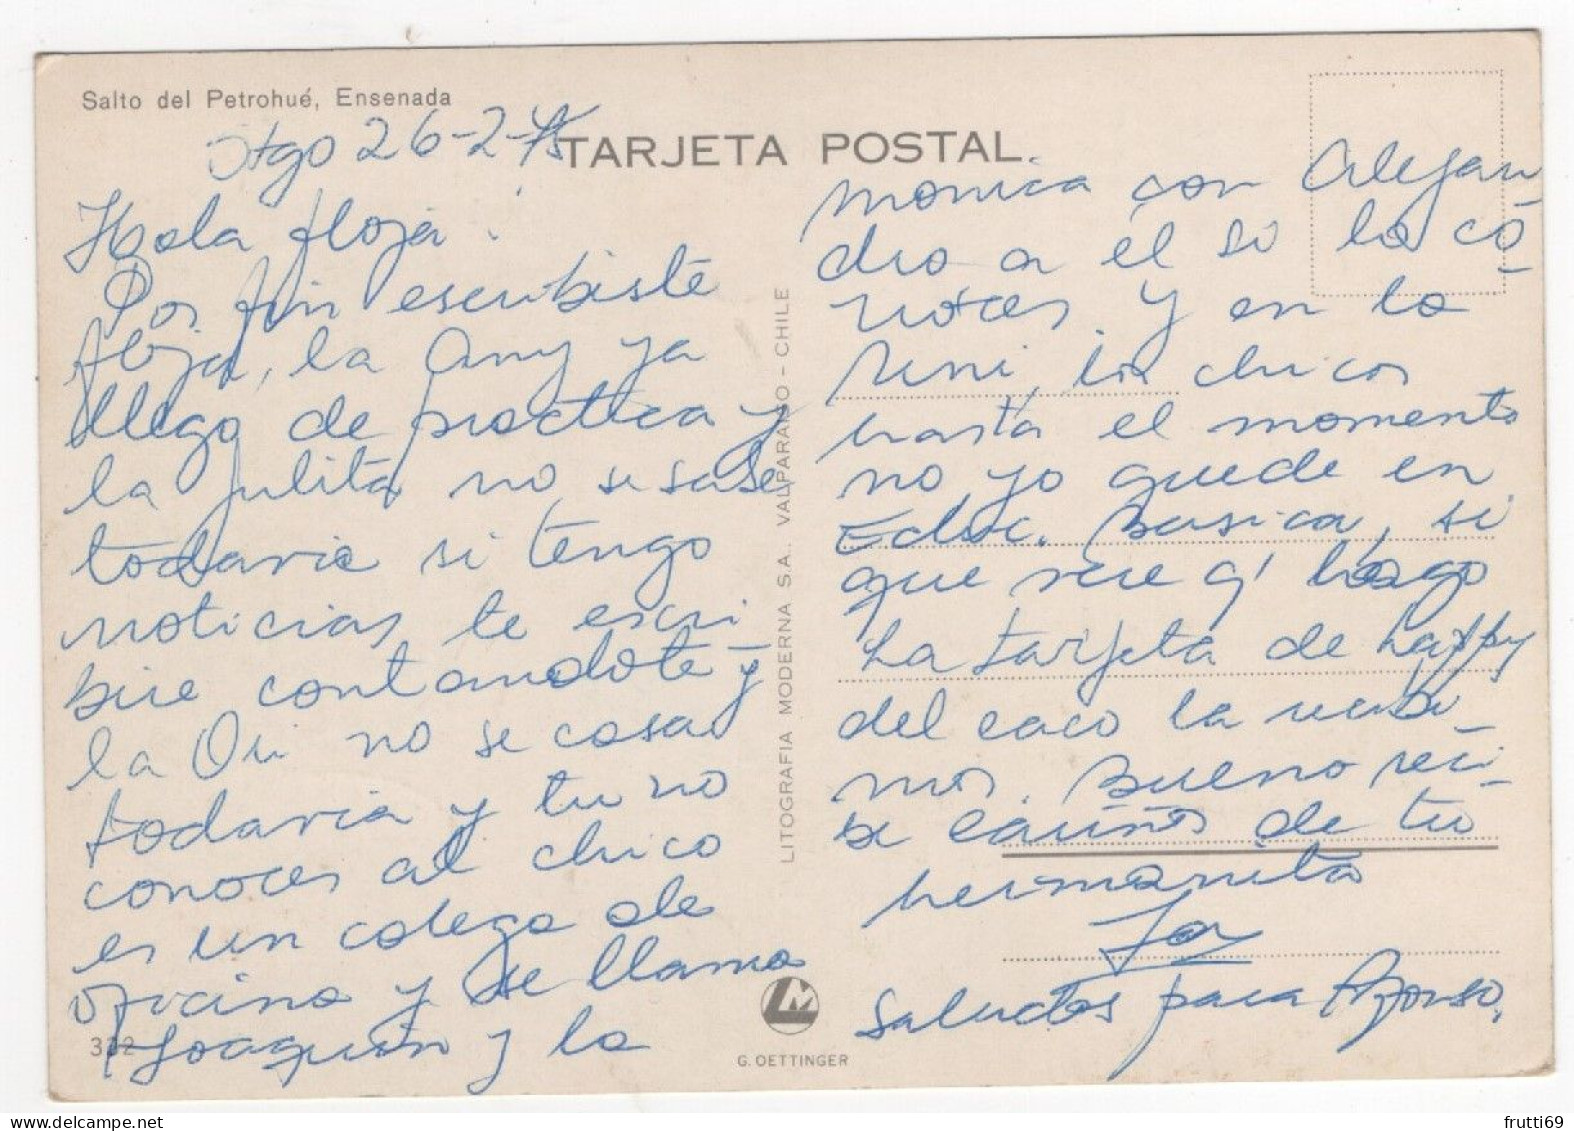 Salto del Petrohué, Ensenada
TARJETA POSTAL
Stgo 26-2-75
Hola floja!
Por fin escribiste
floja, la Any ya
llego de practica y
la Julita no se sabe
todavia si tengo
noticias te escri
bire contandote y
la Ori no se casa
todavia y tu no
conoces al chico
es un colega de
oficina y se llama
Joaquin y la
monica con Alejan
dro a él si lo co-
noces, y en la
Uni, los chicos
hasta el momento
no, yo quede en
Educ. Basica, si
que rere q' hago
La tarjeta de happy
del caco la recibi-
mos. Bueno reci-
be cariños de tu
hermanita
Saludos para Alfonso.
LITOGRAFIA MODERNA S.A., VALPARAISO - CHILE
LM
G. OETTINGER
332
frutti69